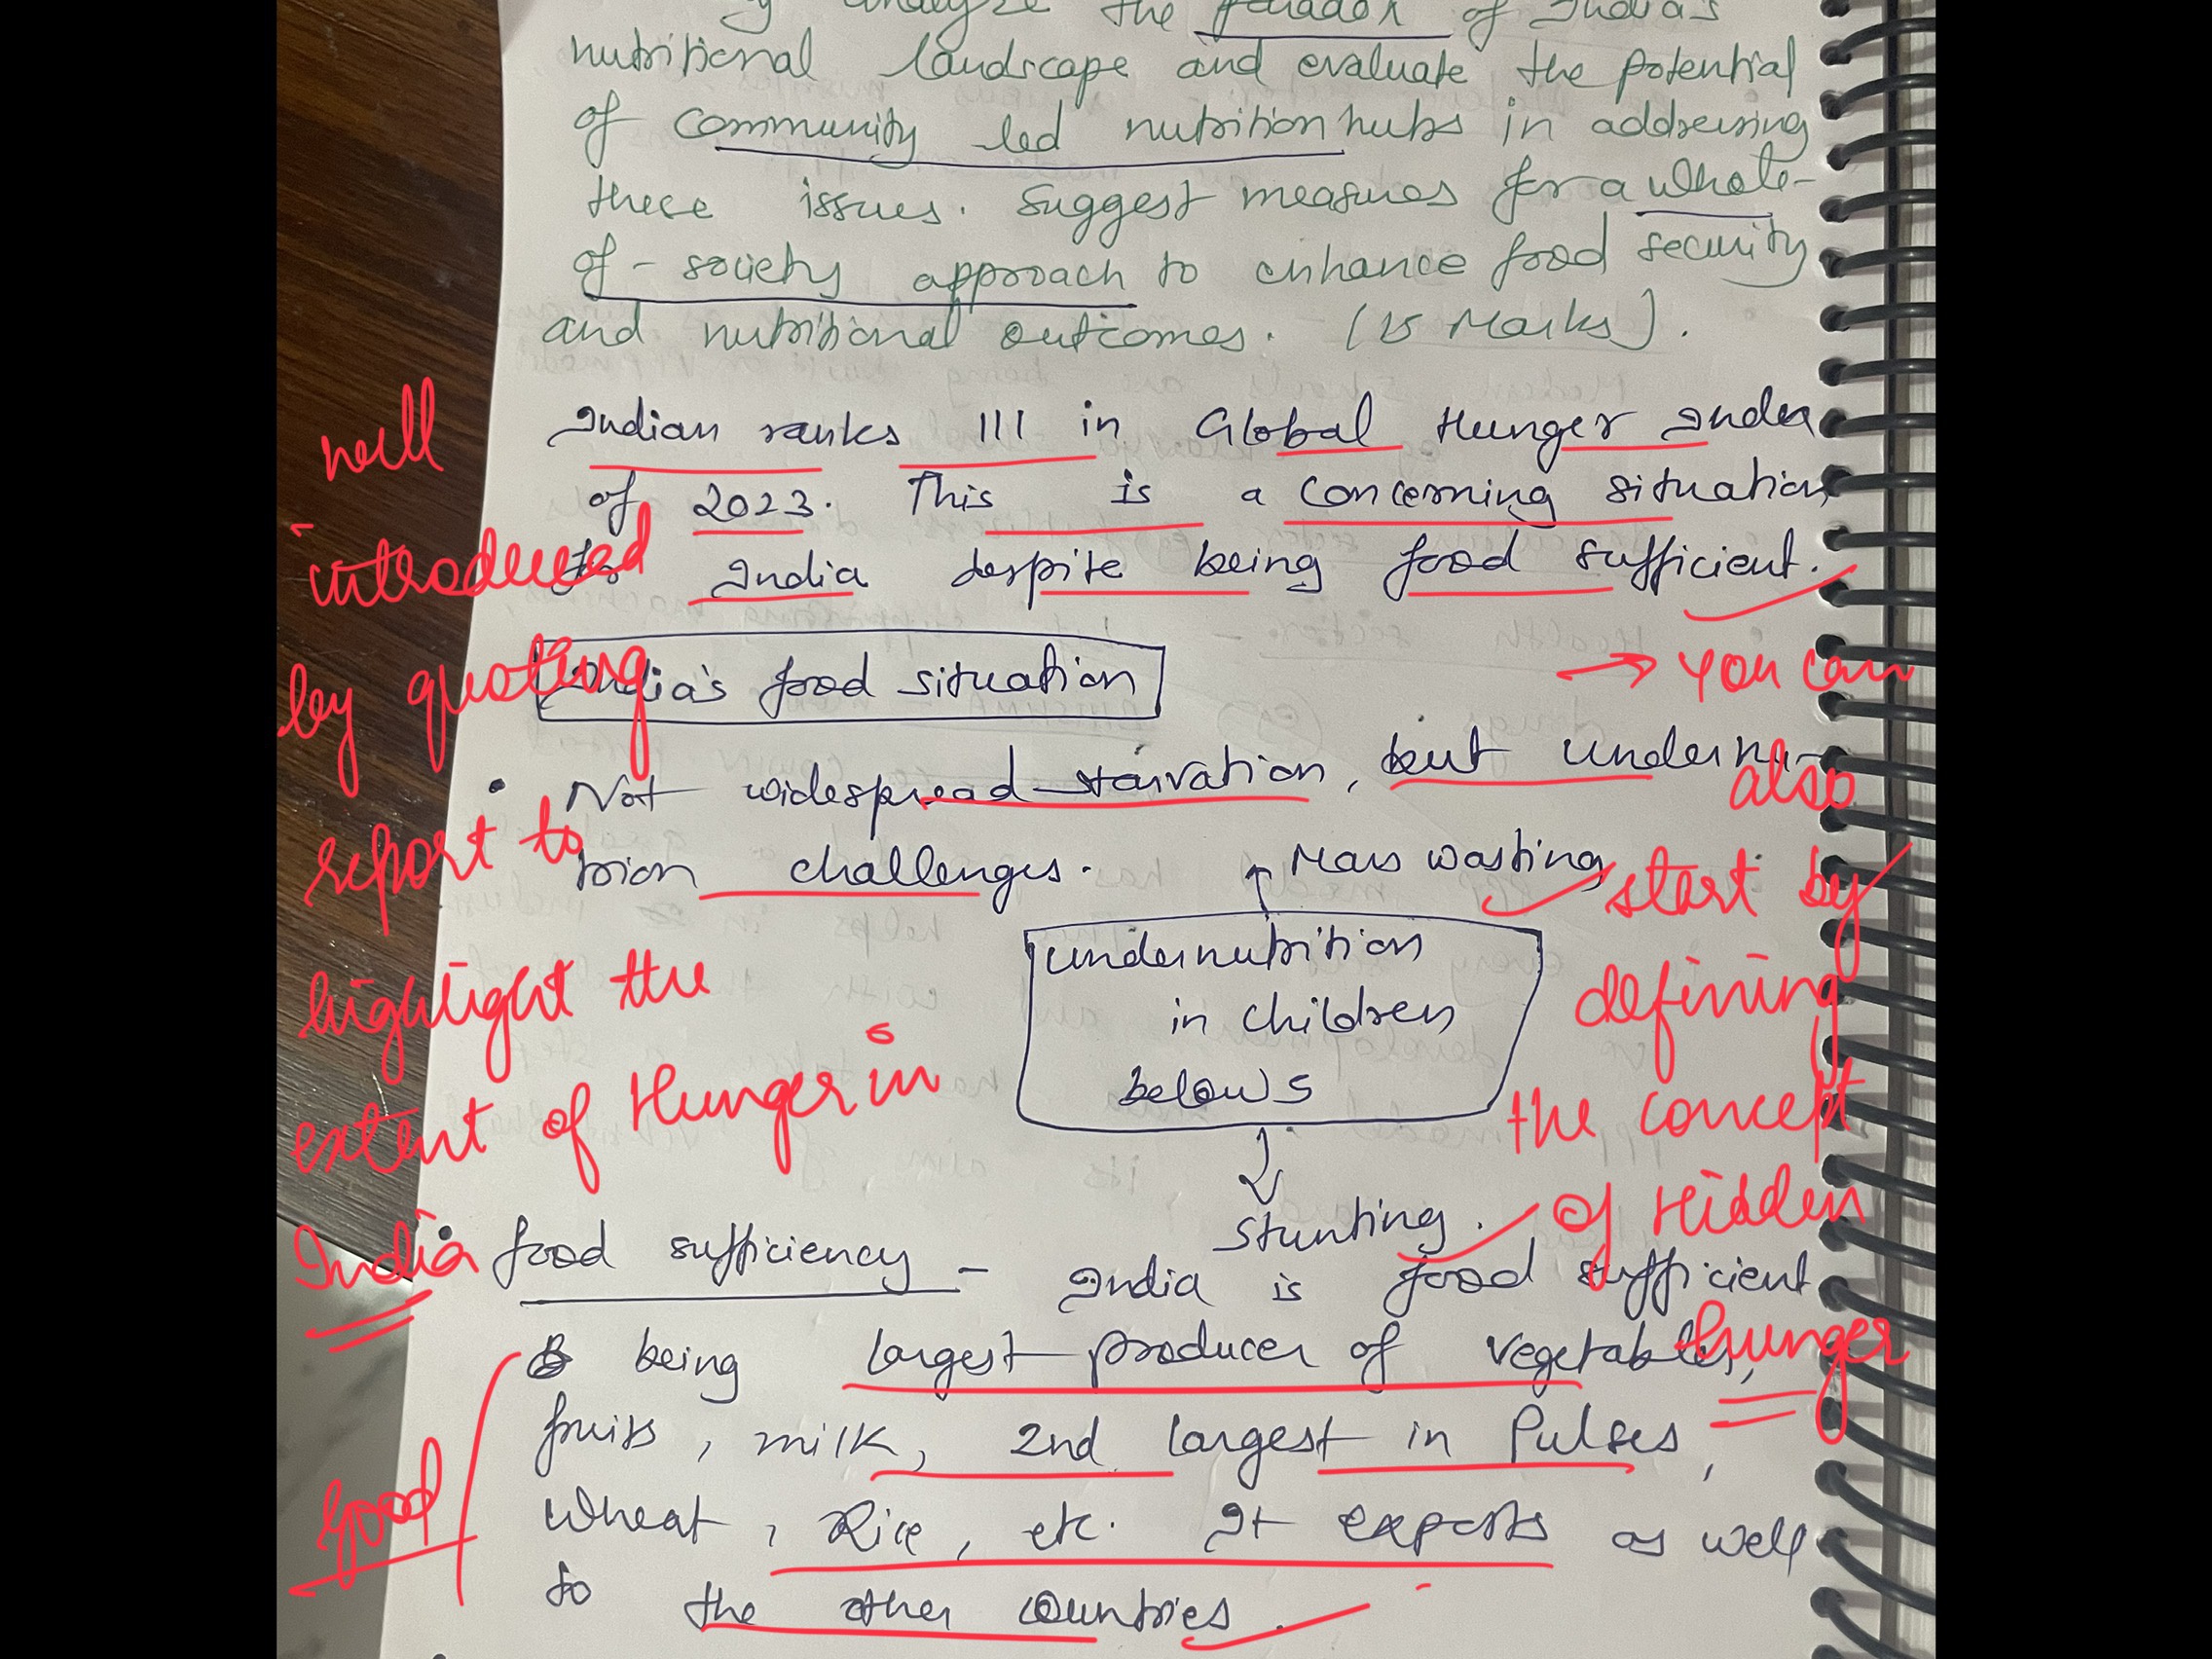 analyze the paradox of India's
nutritional landscape and evaluate the potential
of community led nutrition hubs in addressing
these issues. Suggest measures for a whole-
of-society approach to enhance food security
and nutritional outcomes. (15 Marks).
Indian ranks 111 in Global Hunger Index
of 2023. This is a concerning situation
for India despite being food sufficient.
India's food situation
• Not widespread starvation, but undernu-
trion challenges.
Mass wasting
undernutrition
in children
below 5
Stunting.
• food sufficiency - India is food sufficient
being largest producer of vegetables,
fruits, milk, 2nd largest in Pulses,
Wheat, Rice, etc. It exports as well
to the other countries.
well
introduced
by quoting
report to
highlight the
extent of Hunger in
India
Good
→ You can
also
start by
defining
the concept
of Hidden
hunger